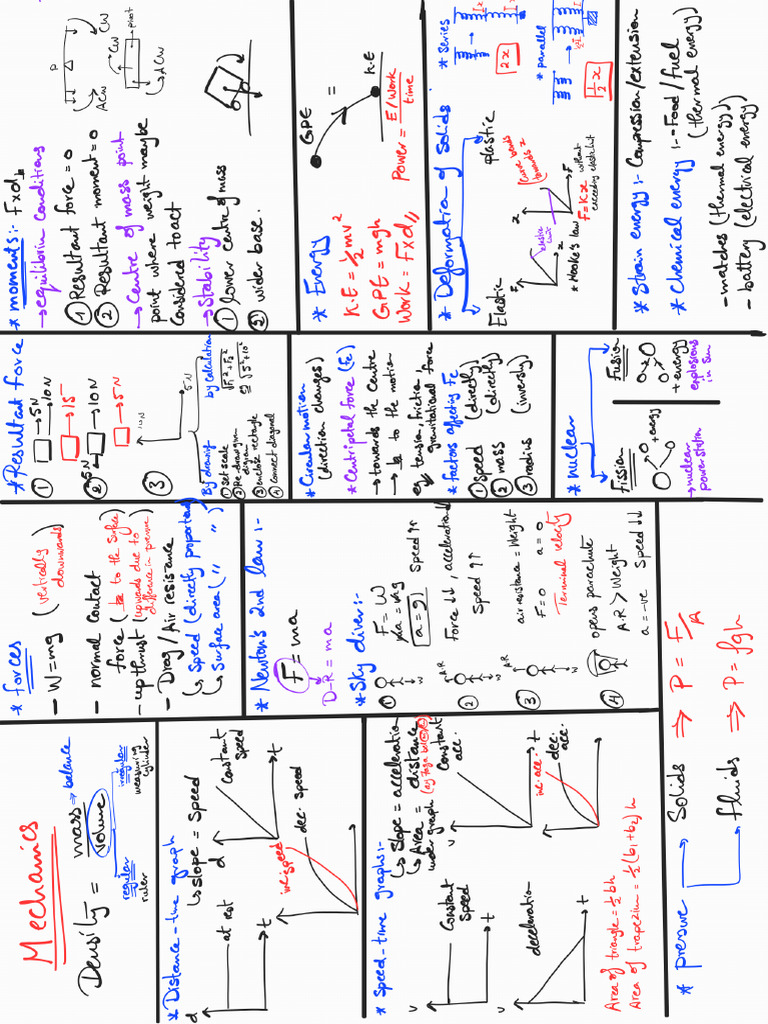 Mechanics
Density = mass → balance
volume
regular
ruler
irregular
measuring
cylinder
* Distance-time graph
↳ slope = Speed
d
at rest
t
d
Constant
speed
t
inc. speed
dec. speed
t
* Speed-time graphs:-
↳ slope = acceleration
↳ Area = distance
under graph
v
Constant
Speed
t
v
Constant
acc.
t
v
deceleration
t
inc. acc.
dec.
acc.
t
Area of triangle = ½bh
Area of trapezium = ½(b1+b2)h
* pressure
Solids ⇒ P = F/A
fluids ⇒ P = ρgh
* forces
- W=mg (vertically
downwards)
- normal contact
force (⊥ to the surface)
- upthrust (upwards due to
difference in pressure)
- Drag/Air resistance
↳ Speed (directly proportional)
↳ Surface area (" ")
* Newton's 2nd law:-
F=ma
D-R=ma
* Sky diver:-
① F=W
ma=mg
a=g
Speed ↑↑
W
② A.R
Force ↓↓, acceleration ↓
Speed ↑↑
W
③ A.R
air resistance = Weight
F=0 a=0
Terminal velocity
W
④ opens parachute
A.R > Weight
a=-ve Speed ↓↓
* Resultant force
① 5N
10N
15
② 5N
10N
5N
③ 10N
5N
By drawing
① set scale
② Re draw given
diagram
③ enclose rectangle
④ connect diagonal
by calculation
√F₁²+F₂²
√5²+10²
* Circular motion
(direction changes)
* Centripetal force (Fc)
→ towards the Centre
→ ⊥ to the motion
eg tension, friction,
gravitational force
* factors affecting Fc
① speed (directly)
② mass (directly)
③ radius (inversly)
* nuclear
Fission
+ energy
→ nuclear
power station
Fusion
+ energy
explosions
in sun
* moments:- Fxd⊥
→ equilibrium conditions
① Resultant force = 0
② Resultant moment = 0
→ Centre of mass point
point where weight maybe
Considered to act
→ stability
① lower centre of mass
② wider base.
P
ACW
CW
CW
pivot
ACW
* Energy
K.E = ½mv²
GPE = mgh
Work = Fxd
GPE = K.E
Power = E/Work
time
* Deformation of solids
Elastic
F
elastic
limit
x
* Hooke's law
plastic
x
F
Curve bends
towards x
F=Kx without
exceeding elastic limit
* series
2x
* parallel
½x
* Strain energy:- Compression/extension
* Chemical energy:- - Food/fuel
(thermal energy)
- matches (thermal energy)
- battery (electrical energy)